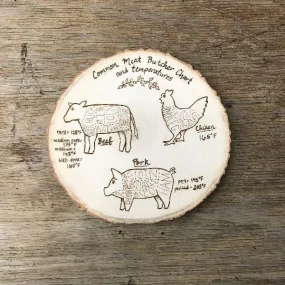 Common Meat Butcher Chart
and temperatures
rare = 125°F
medium rare =
135°F
medium =
145°F
well done =
160°F
Beef
Chicken
165°F
Pork
145°F